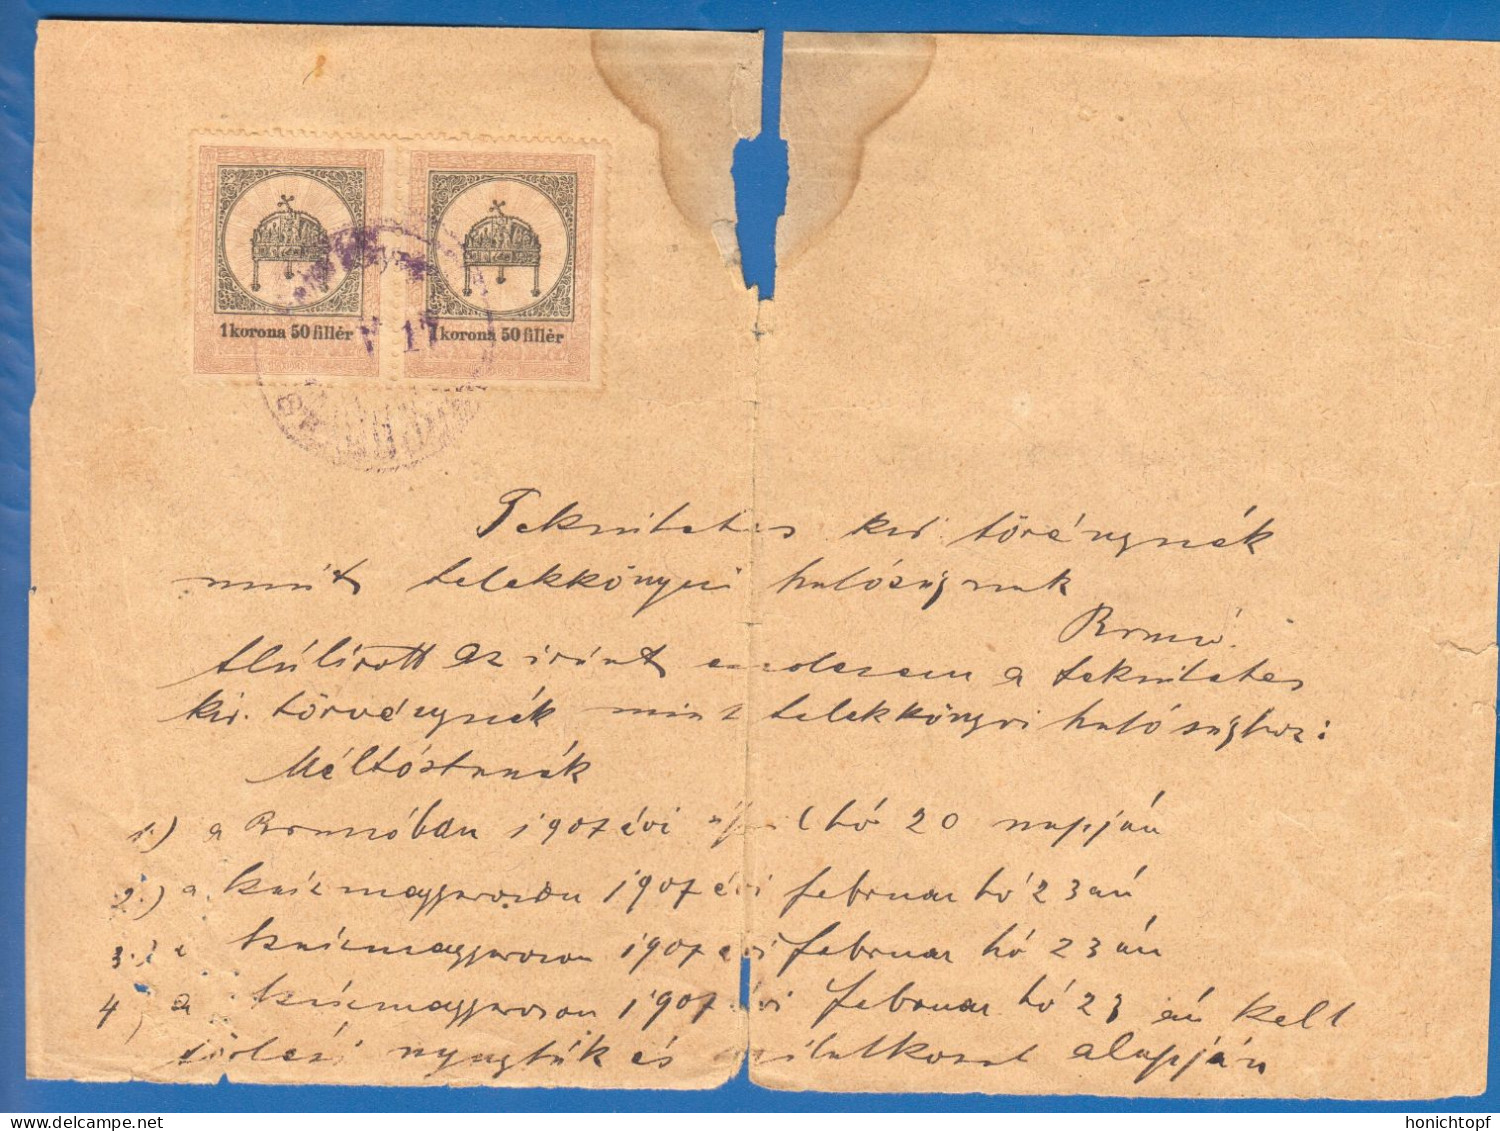 1 korona 50 fillér 1 korona 50 fillér
V 17
Teknitetes kir. törvénynék
mint telekkönyvi hatóságnak
Brassó.
Alúlirott az iránt esedezem a teknitetes
kir. törvénynék mint telekkönyvi hatósághoz:
Méltóztatnék
1.) a Brassóban 1907 évi április hó 20 napján
2.) a 1907 évi februar hó 23 án
3.) a 1907 évi februar hó 23 án
4) a 1907 évi februar hó 23 án kelt
törlési nyugták és nyilatkozat alapján
honichtopf